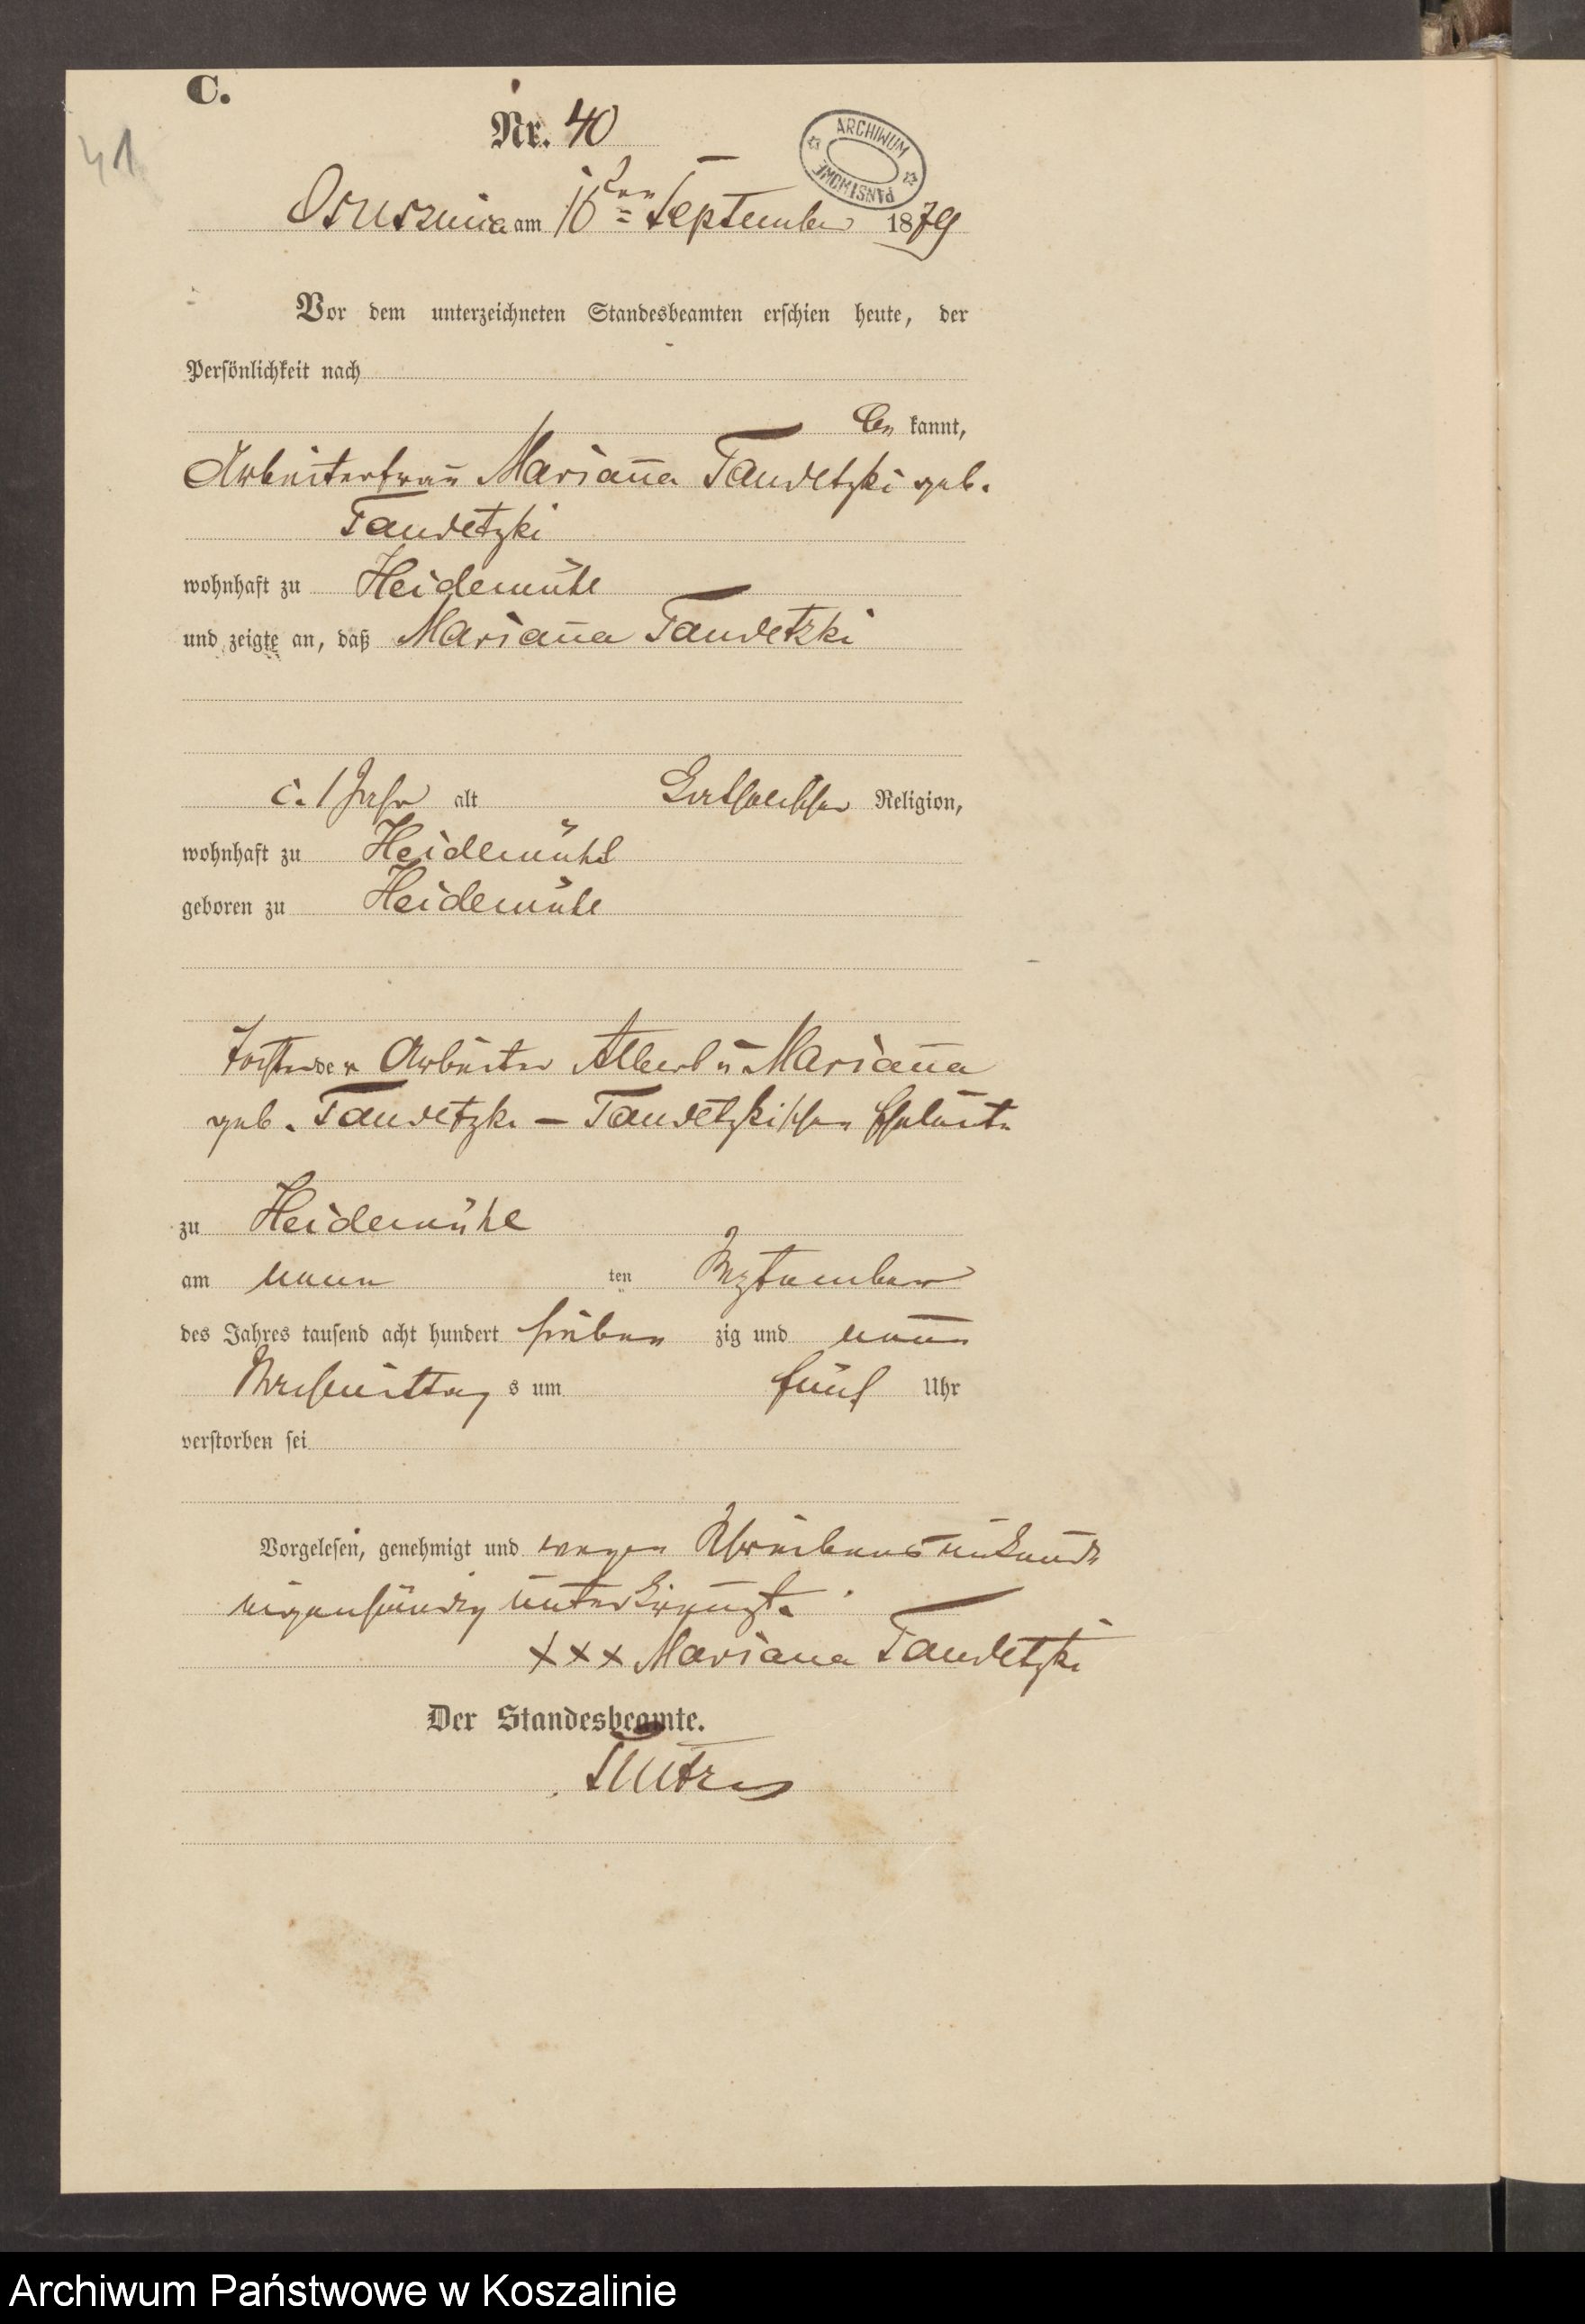 C.
Nr. 40
41
ARCHIWUM PAŃSTWOWE
Osuszniza am 10ten September 1879
Vor dem unterzeichneten Standesbeamten erschien heute, der
Persönlichkeit nach
be kannt,
Arbeiterfrau Marianna Tandetzki geb.
Tandetzki
wohnhaft zu Heidemühl
und zeigte an, daß Marianna Tandetzki
c. 1 Jahr alt katholischer Religion,
wohnhaft zu Heidemühl
geboren zu Heidemühl
Tochter der Arbeiter Albert u Marianna
geb. Tandetzki - Tandetzkischen Eheleute
zu Heidemühl
am neun ten September
des Jahres tausend acht hundert sieben zig und neun
Nachmittag s um fünf Uhr
verstorben sei
Vorgelesen, genehmigt und wegen Schreibensunkunde
eigenhändig unterkreuzt.
XXX Mariana Tandetzki
Der Standesbeamte.
Archiwum Państwowe w Koszalinie